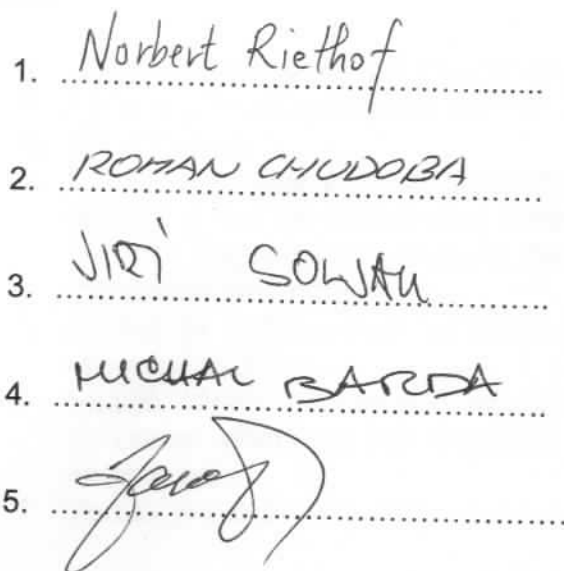 1. Norbert Riethof
2. ROMAN CHUDOBA
3. JIŘÍ
4. MICHAL BARDA
5.